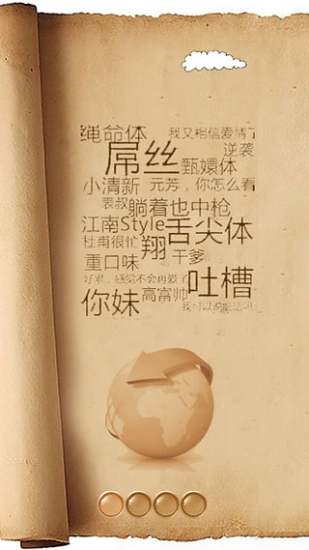 绳命体 我又相信爱情了
屌丝 逆袭
甄嬛体
小清新 元芳，你怎么看
表叔 躺着也中枪
江南Style 舌尖体
杜甫很忙 翔 干爹
重口味
好累，感觉不会再爱了 吐槽
你妹 高富帅